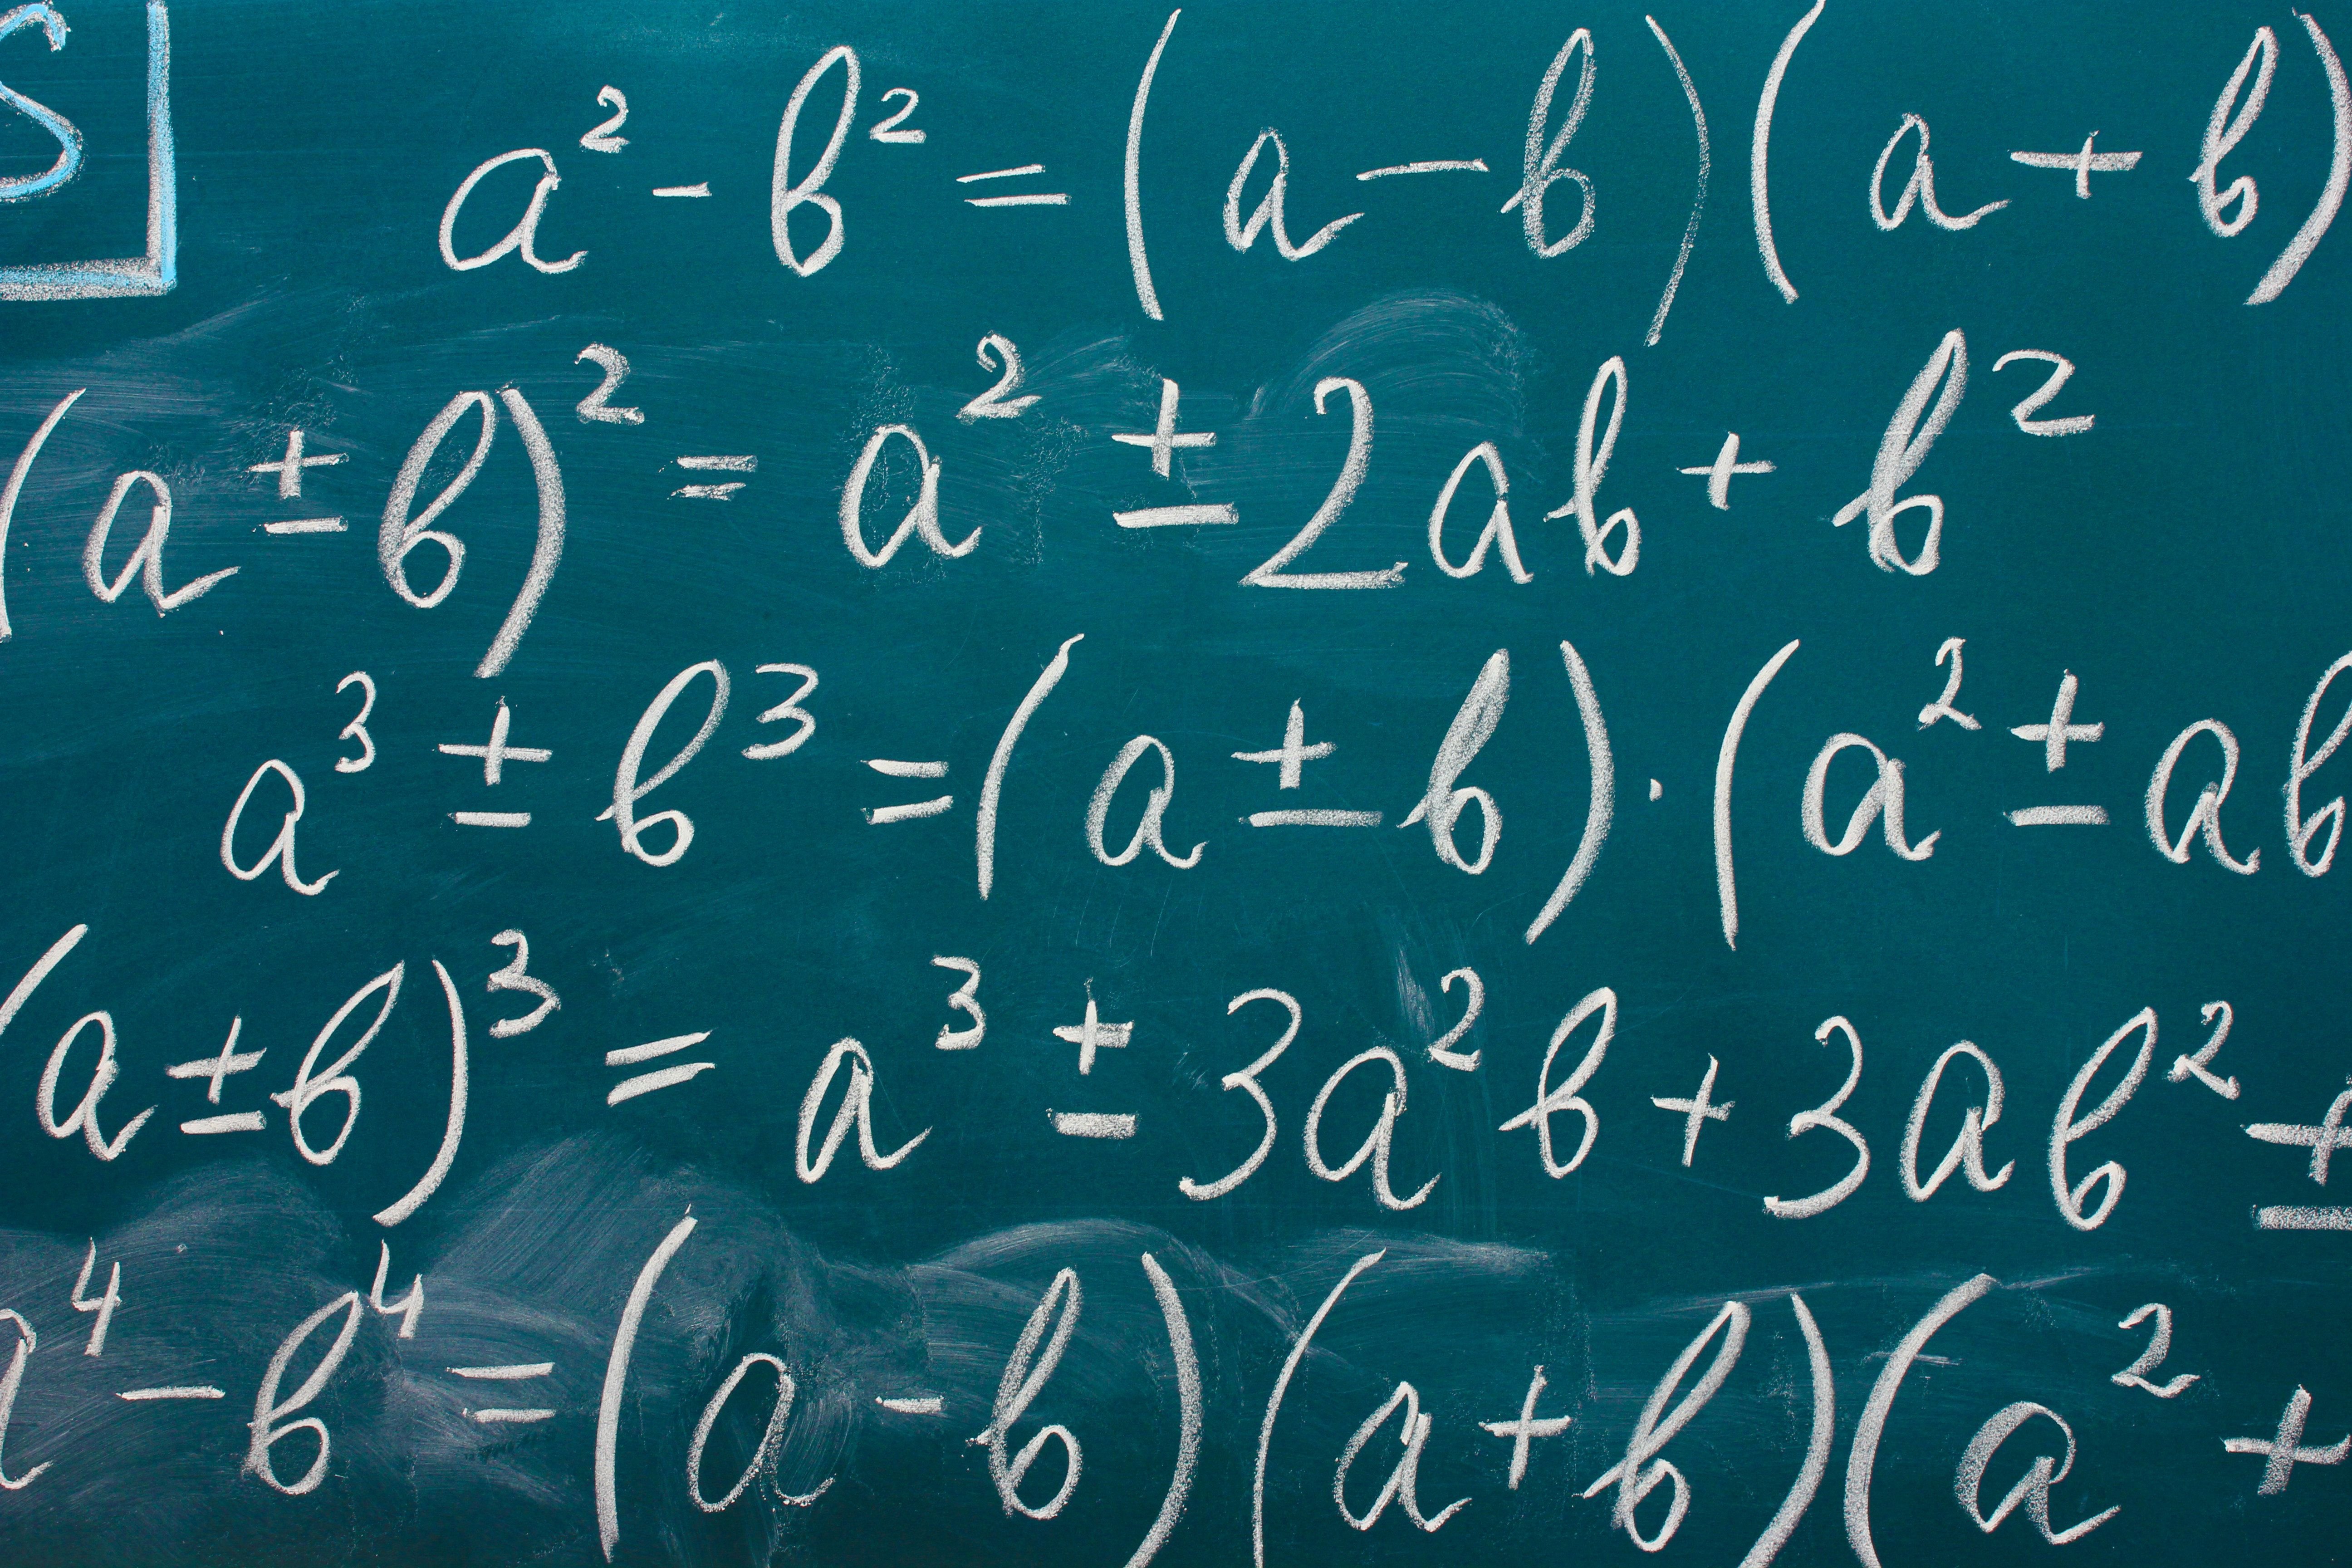 S
a² - b² = (a - b)(a + b)
(a ± b)² = a² ± 2ab + b²
a³ ± b³ = (a ± b) · (a² ± ab
(a ± b)³ = a³ ± 3a²b + 3ab² ±
a⁴ - b⁴ = (a - b)(a + b)(a² +